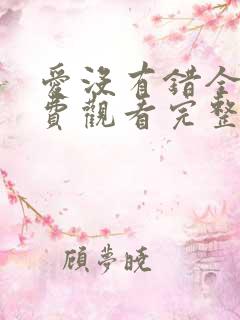 愛沒有錯全
費觀看完整
顧夢曉